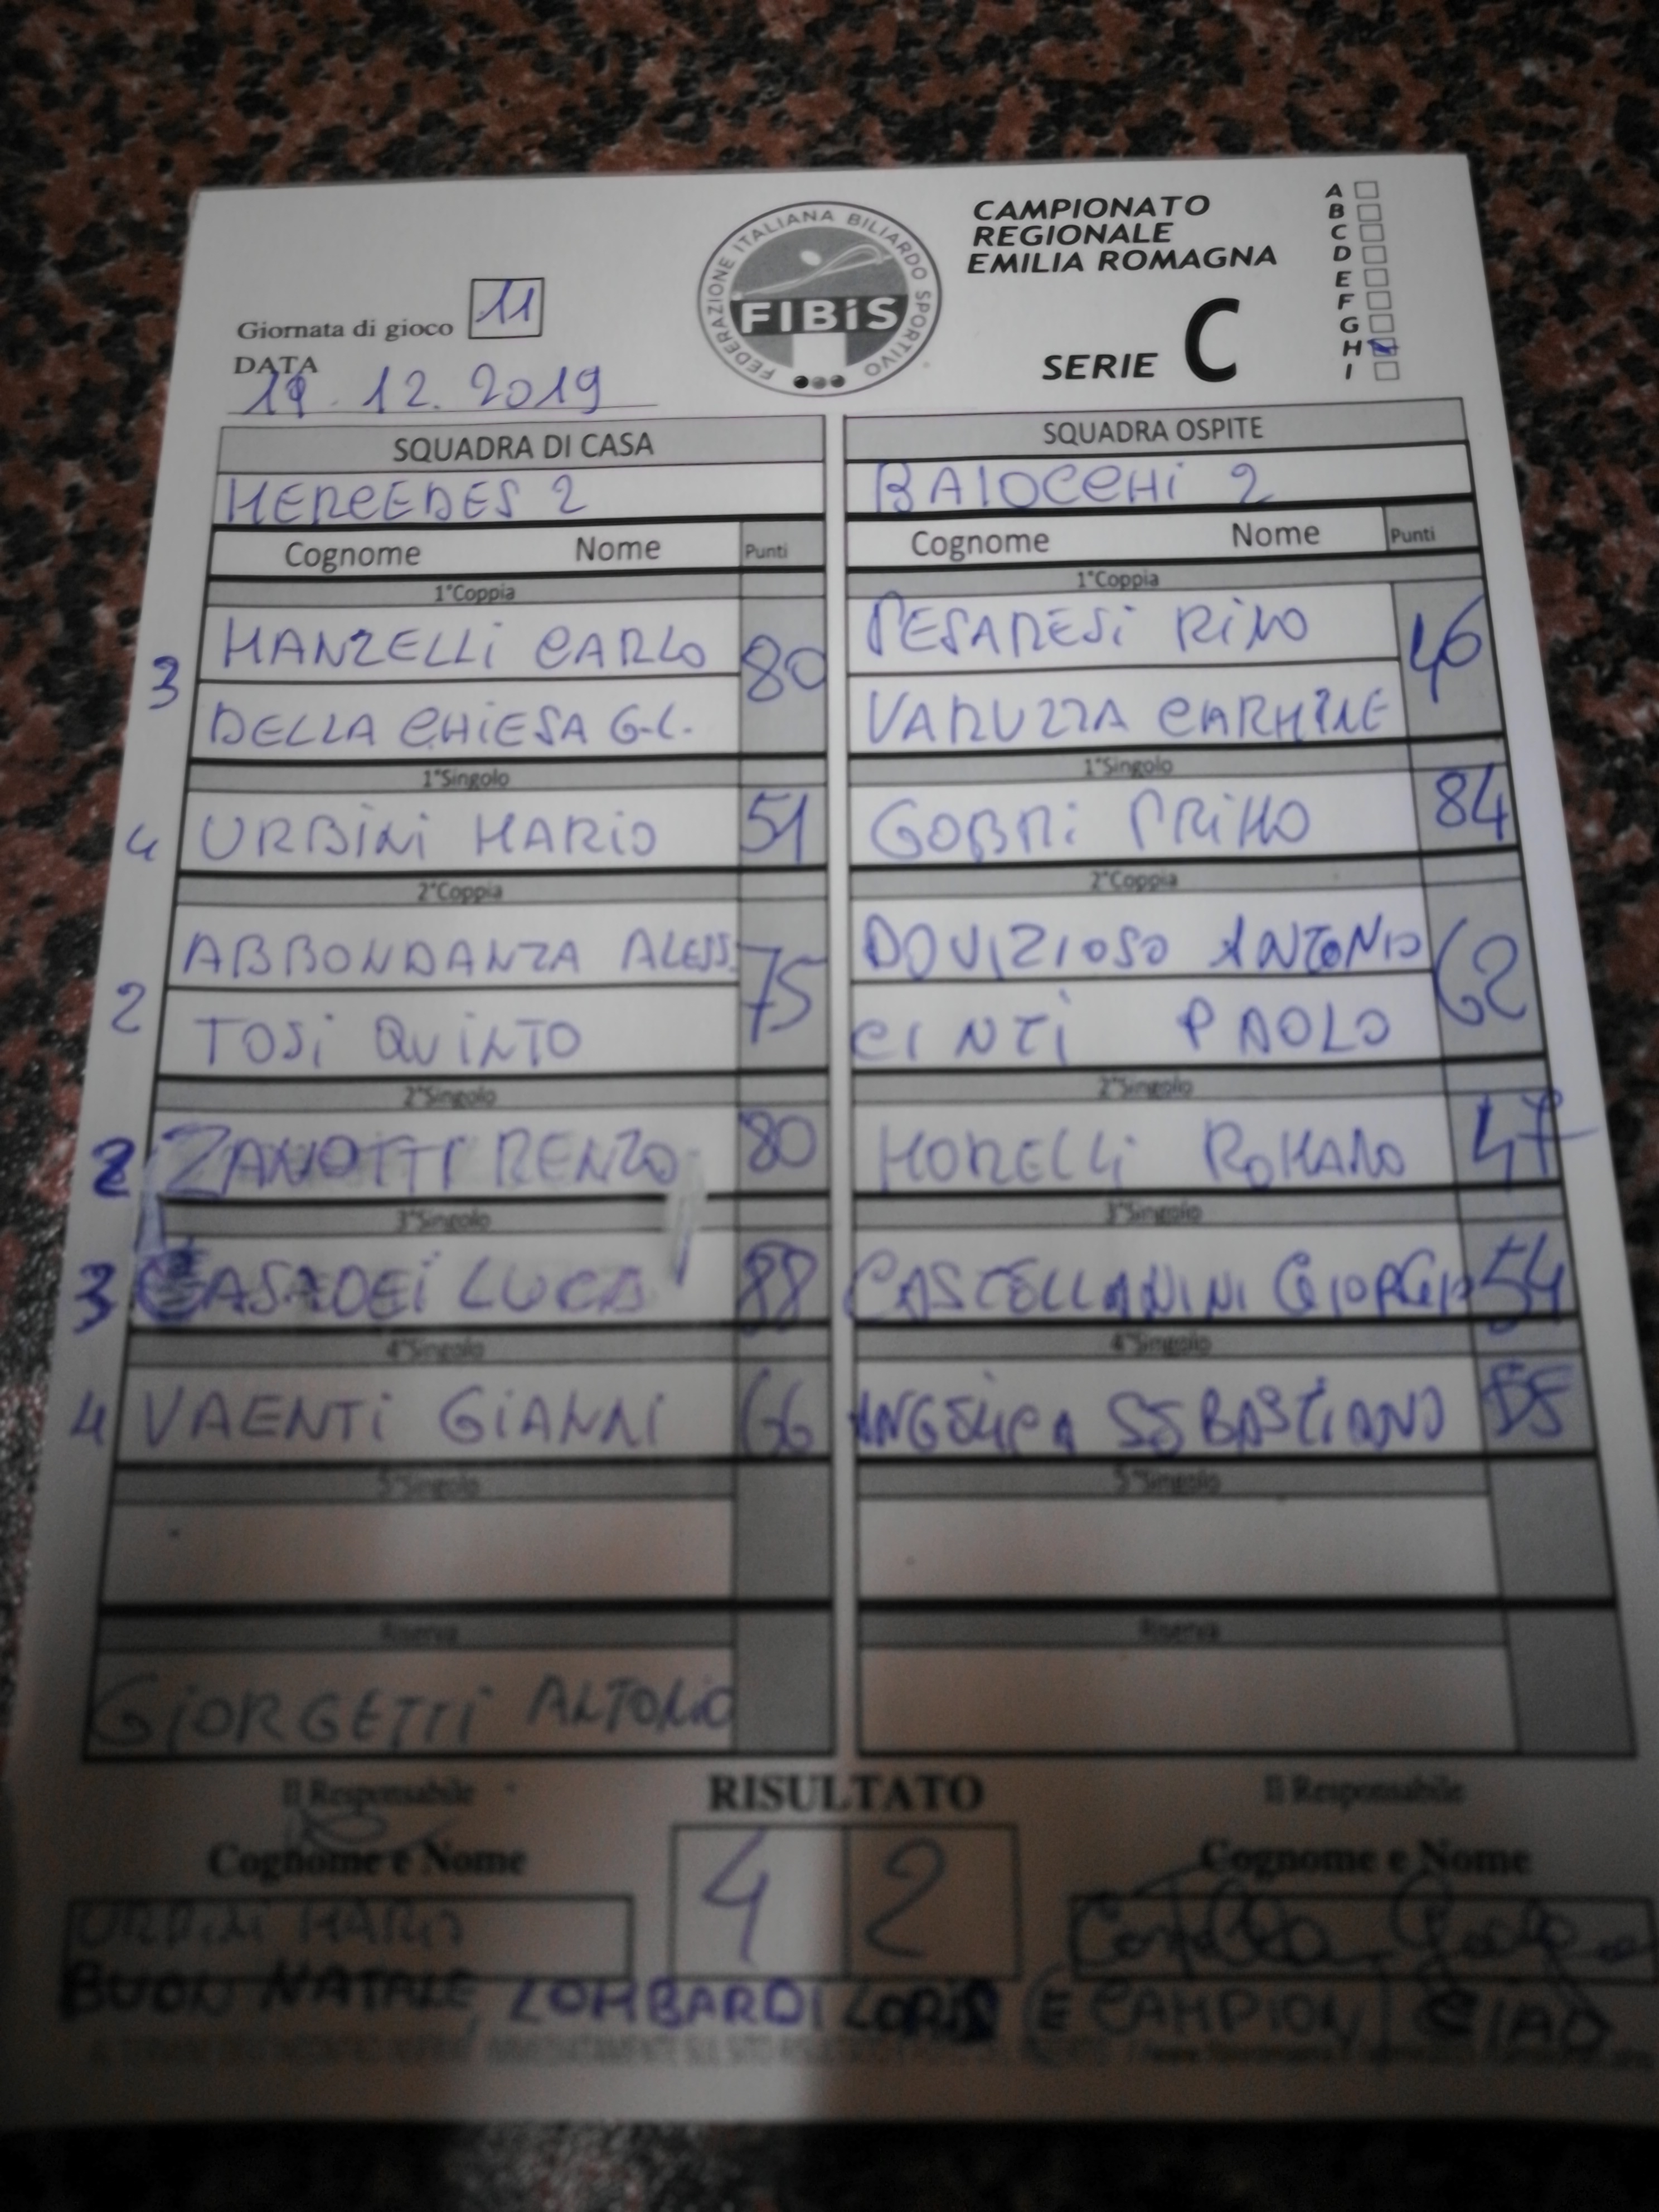 FEDERAZIONE ITALIANA BILIARDO SPORTIVO
FIBiS
CAMPIONATO
REGIONALE
EMILIA ROMAGNA
SERIE C
A
B
C
D
E
F
G
H
I
Giornata di gioco 11
DATA
19.12.2019
SQUADRA DI CASA SQUADRA OSPITE
MERCEDES 2 BAIOCCHI 2
Cognome Nome Punti Cognome Nome Punti
1°Coppia 1°Coppia
3 MANZELLI CARLO 80 PESARESI RINO 46
DELLA CHIESA G.C. VARUZZA CARMINE
1°Singolo 1°Singolo
4 URBINI MARIO 51 GOBBI PRIMO 84
2°Coppia 2°Coppia
2 ABBONDANZA ALESS. 75 DOVIZIOSO ANTONIO 62
TOSI QUINTO CINTI PAOLO
2°Singolo 2°Singolo
2 ZANOTTI RENZO 80 MORELLI ROMANO 47
3°Singolo 3°Singolo
3 CASADEI LUCA 88 CASTELLANINI GIORGIO 54
4°Singolo 4°Singolo
4 VAENTI GIANNI 66 ANGELICA SEBASTIANO 85
5°Singolo 5°Singolo
Riserva Riserva
GIORGETTI ANTONIO
Il Responsabile RISULTATO Il Responsabile
Cognome e Nome 4 2 Cognome e Nome
URBINI MARIO
BUON NATALE LOMBARDI LORIS (E CAMPIONI) CIAO